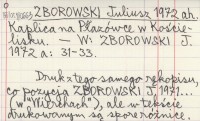 ZBOROWSKI Juliusz 1972 ah.
Kaplica na Płazówce w Koście-
lisku. — W: ZBOROWSKI J.
1972 a: 31-33.
Druk z tego samego rękopisu,
co pozycja ZBOROWSKI J. 1971...
(w „Wierchach"), ale w tekście
drukowanym są spore różnice.